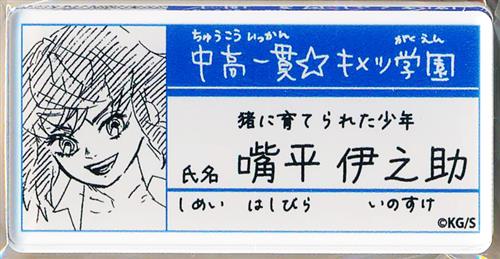 ちゅうこういっかん がくえん
中高一貫☆キメツ学園
猪に育てられた少年
氏名 嘴平 伊之助
しめい はしびら いのすけ
©KG/S